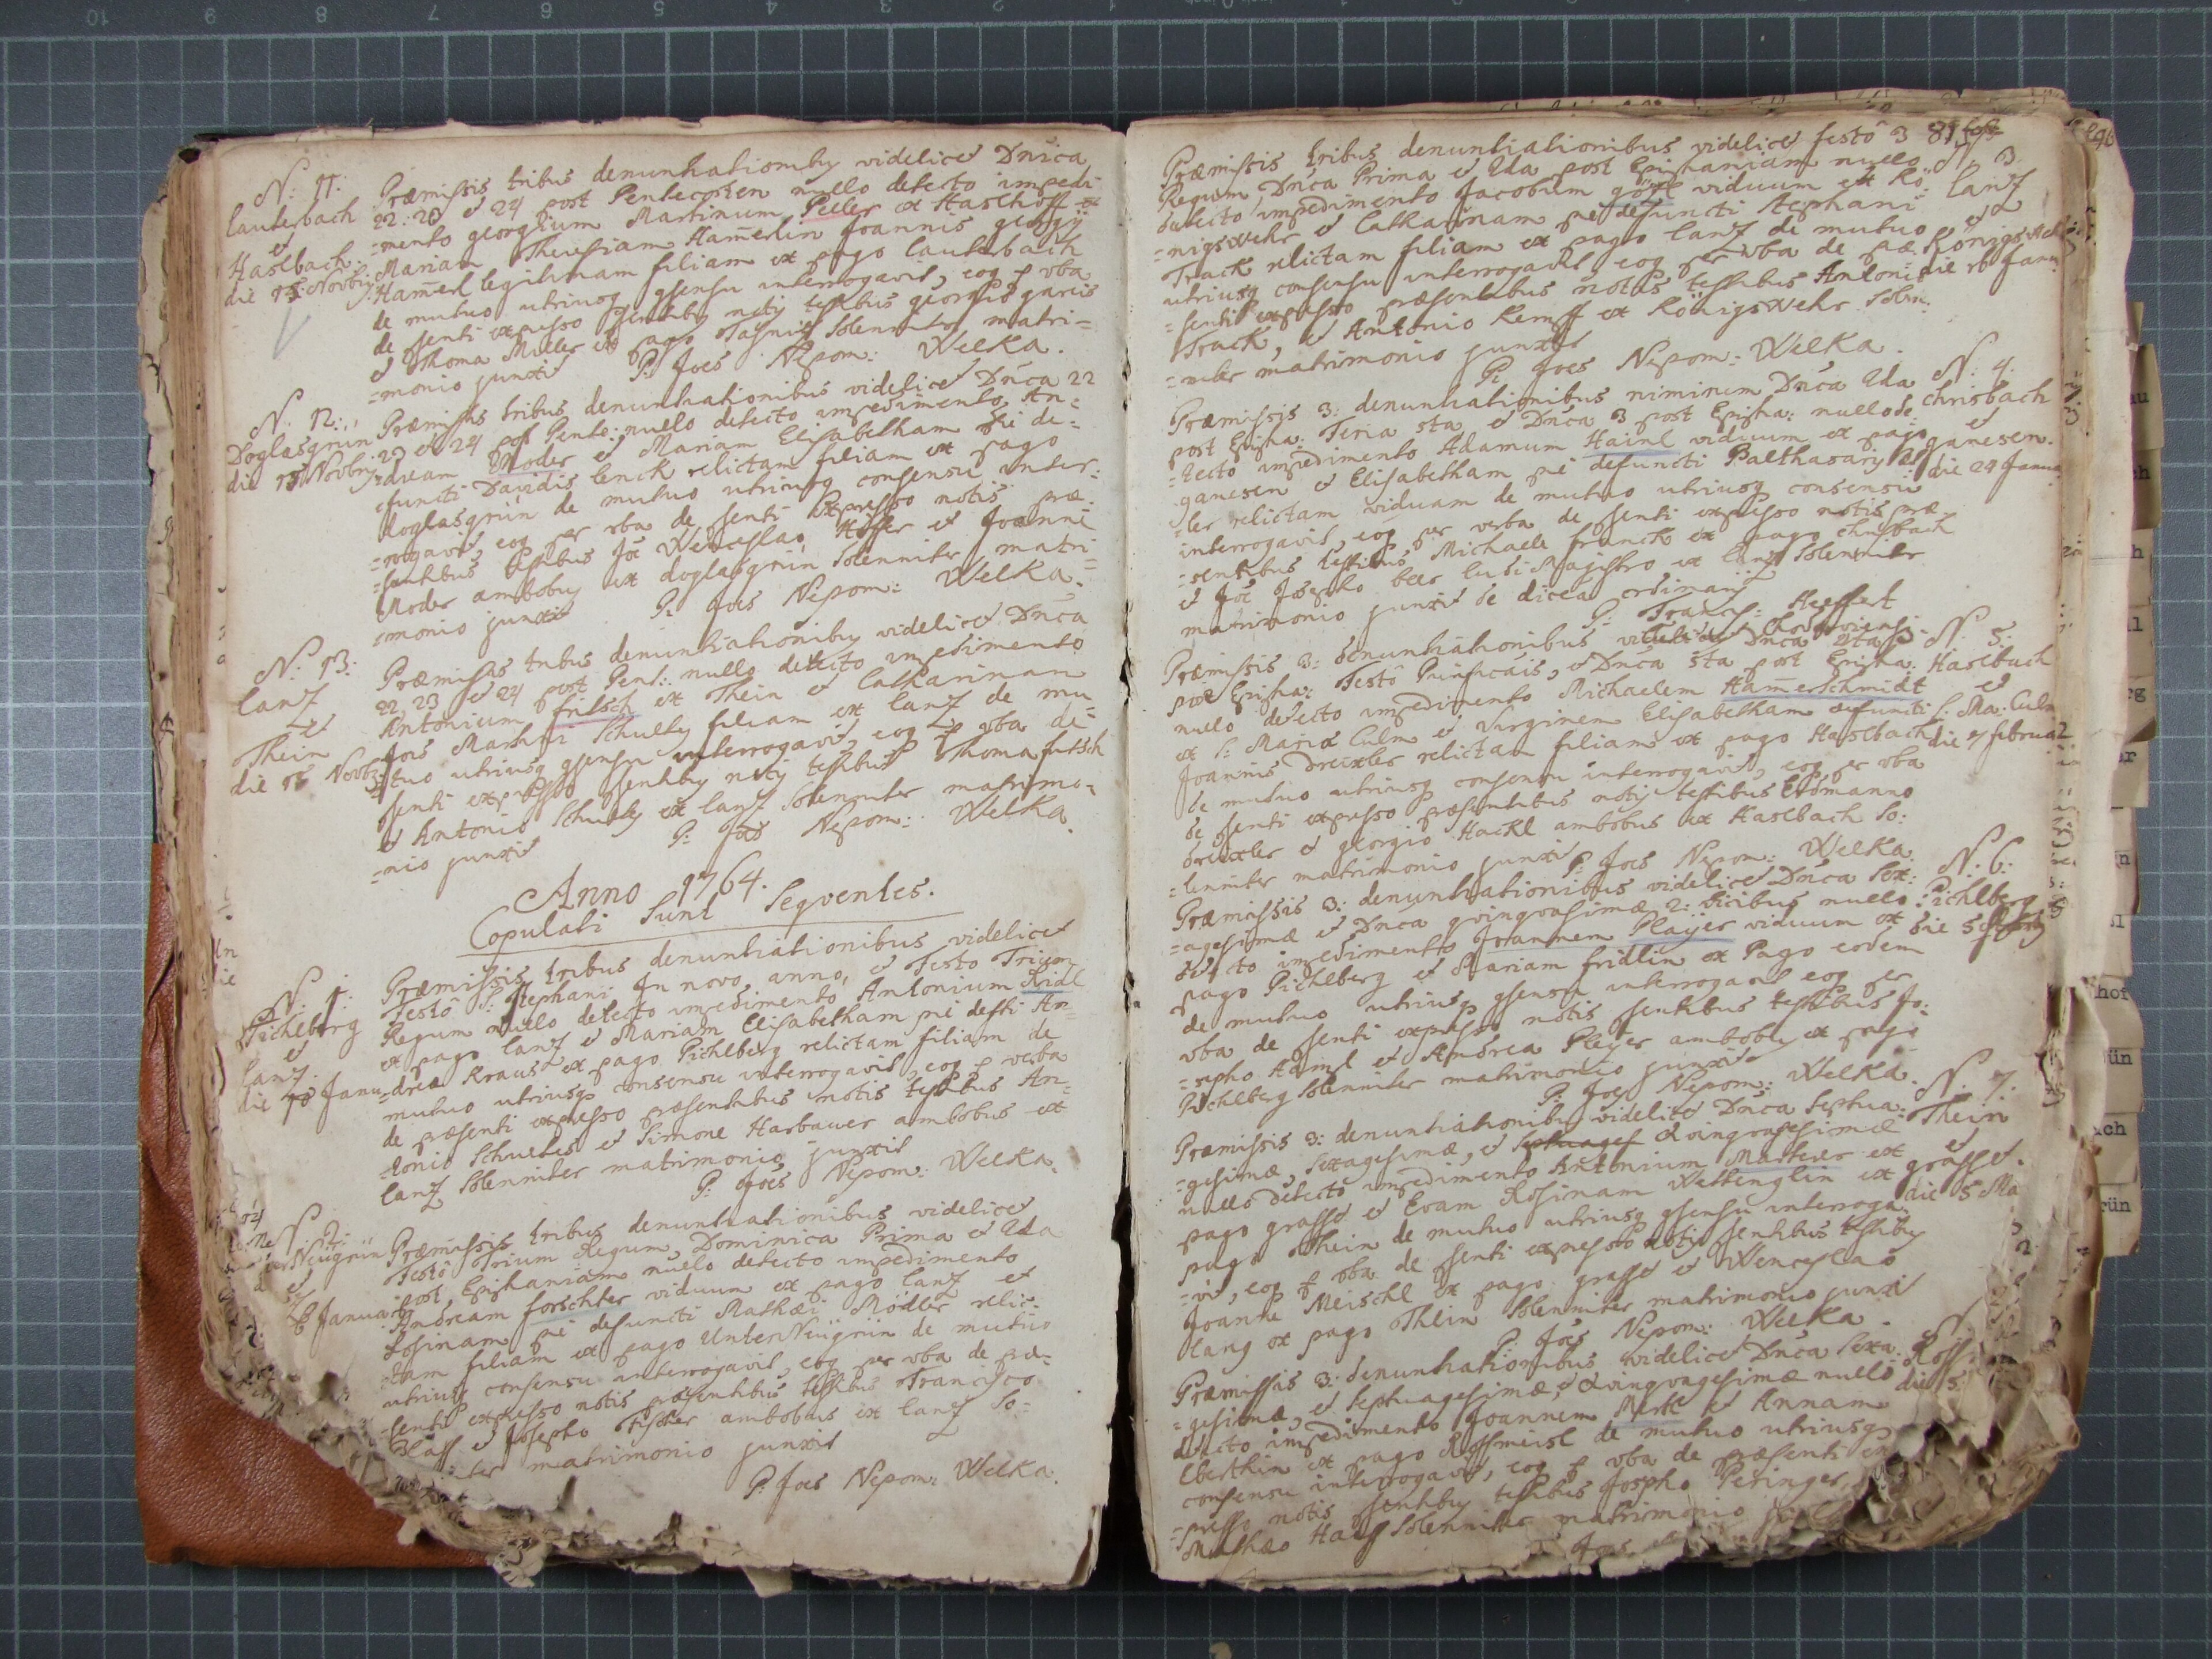 N: 11:
Lauterbach
et
Haslbach.
die 15 Novbris
Præmissis tribus denuntiationibus videlicet Dnica
22. 23 et 24 post Pentecosten nullo detecto impedi-
=mento georgium Martinum Peller ex Haselhoff et
Mariam Theresiam Hamerlin Joannis georgÿ
Hamerl legitimam filiam ex pago Lauterbach
de mutuo utriusq gsensu interrogavit, eoq p vba
de psenti expresso psentibus notis testibus georgio gareis
et Thoma Miller ex pago solenniter matri=
=monio junxit P: Joes Nepom: Welka.
N. 12:
Doglasgrün
die 15 Novbris
Præmissis tribus denuntiationibus videlicet Dnca 22
23 et 24 post Pente: nullo detecto impedimento An=
=dream Moder et Mariam Elisabetham pie de=
=functi Davidis Lenck relictam filiam ex pago
doglasgrün de mutuo utriusq consensu inter=
=rogavit, eoq per vba de psenti expresso notis præ=
=sentibus testibus Joe Wenceslao Hoffer et Joanne
Moder ambobus ex doglasgrün solenniter matri=
=monio junxit P: Joes Nepom: Welka.
N: 13:
Lanz
et
Thein
die 15 Novbris
Præmissis tribus denuntiationibus videlicet Dnca
22, 23 et 24 post Pent: nullo detecto impedimento
Antonium fritsch ex Thein et Catharinam
Jois Martini Schultz filiam ex Lanz de mu=
=tuo utriusq gsensu interrogavit, eoq p vba de
psenti expresso psentibus notis testibus Thoma fritsch
et Antonio Schultz ex Lanz solenniter matrimo=
=nio junxit P: Joes Nepom: Welka.
Anno 1764.
Copulati Sunt Seqventes.
N. 1:
Pichlberg
et
Lanz.
die 18 Janu
Præmissis tribus denuntiationibus videlicet
Festo S: Stephani In novo anno, et Festo Trium
Regum nullo detecto impedimento Antonium Ridl
ex pago Lanz et Mariam Elisabetham pie defti An=
=dreæ Kraus ex pago Pichlberg relictam filiam de
mutuo utriusq consensu interrogavit, eoq p verba
de præsenti expresso præsentibus notis testibus An=
=tonio Schultes et Simone Harbauer ambobus ex
Lanz solenniter matrimonio junxit
P: Joes Nepom: Welka.
N. 2:
Neügrün
et
16 Januar
Præmissis tribus denuntiationibus videlicet
Festo Trium Regum, Dominica Prima et 2da
post Epiphaniam nullo detecto impedimento
Andream forschter viduum ex pago Lanz et
Rosinam pie defuncti Mathæi Mödler relic=
=tam filiam ex pago UnterNeügrün de mutuo
utriusq consensu interrogavit, eoq per vba de præ=
=senti expresso notis præsentibus testibus Francisco
Blass et Josepho Fischer ambobus ex Lanz So=
ter matrimonio junxit
P: Joes Nepom: Welka.
Præmissis tribus denuntiationibus videlicet festo 3
Regum, Dnca Prima et 2da post Epiphaniam nullo
detecto impedimento Jacobum görl viduum ex Kö=
=nigswehr et Catharinam pie defuncti Stephani
Track relictam filiam ex pago Lanz de mutuo
utriusq consensu interrogavit, eoq per vba de præ=
=senti expresso præsentibus notis testibus Antonio
Track, et Antonio Kempff ex Königswehr Solen=
=niter matrimonio junxit
P: Joes Nepom: Welka.
N. 3
Lanz
et
Königsweh
die 16 Janu
Præmissis 3: denuntiationibus niminum Dnca 2da
post Epipha: Feria sta et Dnca 3 post Epipha: nullo de=
=tecto impedimento Adamum Hainl viduum ex pago
ganesen et Elisabetham pie defuncti Balthasaris
ler relictam viduam de mutuo utriusq consensu
interrogavit, eoq per verba de psenti expresso notis præ=
=sentibus testibus Michaele franck ex pago Chrisbach
et Joe Josepho beer ludi Magistro ex Lanz Solenniter
matrimonio junxit de licea ordinarÿ
P: Francis: Heffert
N: 4:
Chrisbach
et
ganesen.
die 24 Janua
Præmissis 3: denuntiationibus videlicet Dnca 4ta
post Epipha: Festo Purificãis, et Dnca 5ta post Epipha:
nullo detecto impedimento Michaelem Hamerschmidt
ex S: Maria Culm et Virginem Elisabetham defuncti
Joannis Dreixler relictam filiam ex pago Haselbach
de mutuo utriusq consensu interrogavit, eoq per vba
de psenti expresso præsentibus notis testibus Erdmanno
Dreixler et georgio Hackl ambobus ex Haslbach So:
=lenniter matrimonio junxit P: Joes Nepom: Welka.
N. 5:
Haselbach
et
S: Ma: Culm
die 7 februa
Præmissis 3: denuntiationibus videlicet Dnca Sex:
=agesimæ et Dnca qvinqvagesimæ 2: vicibus nullo
detecto impedimento Joannem Plaÿer viduum ex
pago Pichlberg et Mariam fridlin ex Pago eodem
de mutuo utriusq gsensu interrogavit eoq per
vba de psenti expresso notis psentibus testibus Jo:
=sepho Haiml et Andrea Pleÿer ambobus ex pago
Pichlberg Solenniter matrimonio junxit
P: Joes Nepom: Welka.
N. 6:
Pichlberg
die 5
Præmissis 3: denuntiationibus videlicet Dnca Septua:
=gesimæ, Sexagesimæ, et Qvinqvagesimæ
nullo detecto impedimento Antonium Matterer ex
pago grasset et Evam Rosinam Wettenglin ex
pago Thein de mutuo utriusq gsensu interroga=
=vit, eoq p vba de psenti expresso notis psentibus testibus
Joanne Meischl ex pago grasset et Wenceslao
Lang ex pago Thein Solenniter matrimonio junxit
P: Joes Nepom: Welka.
N. 7.
Thein
et
grasset.
die 5 Ma
Præmissis 3: denuntiationibus videlicet Dnca Sexa=
=gesimæ, et Septuagesimæ et Qvinqvagesimæ nullo
detecto impedimento Joannem Mertl et Annam
Eberthin ex pago Rossmeisl de mutuo utriusq
consensu interrogavit, eoq p vba de præsenti ex
=presso notis psentibus testibus Josepho Peringer,
Mathæo Hass Solenniter matrimonio
N.
Ross
die 5